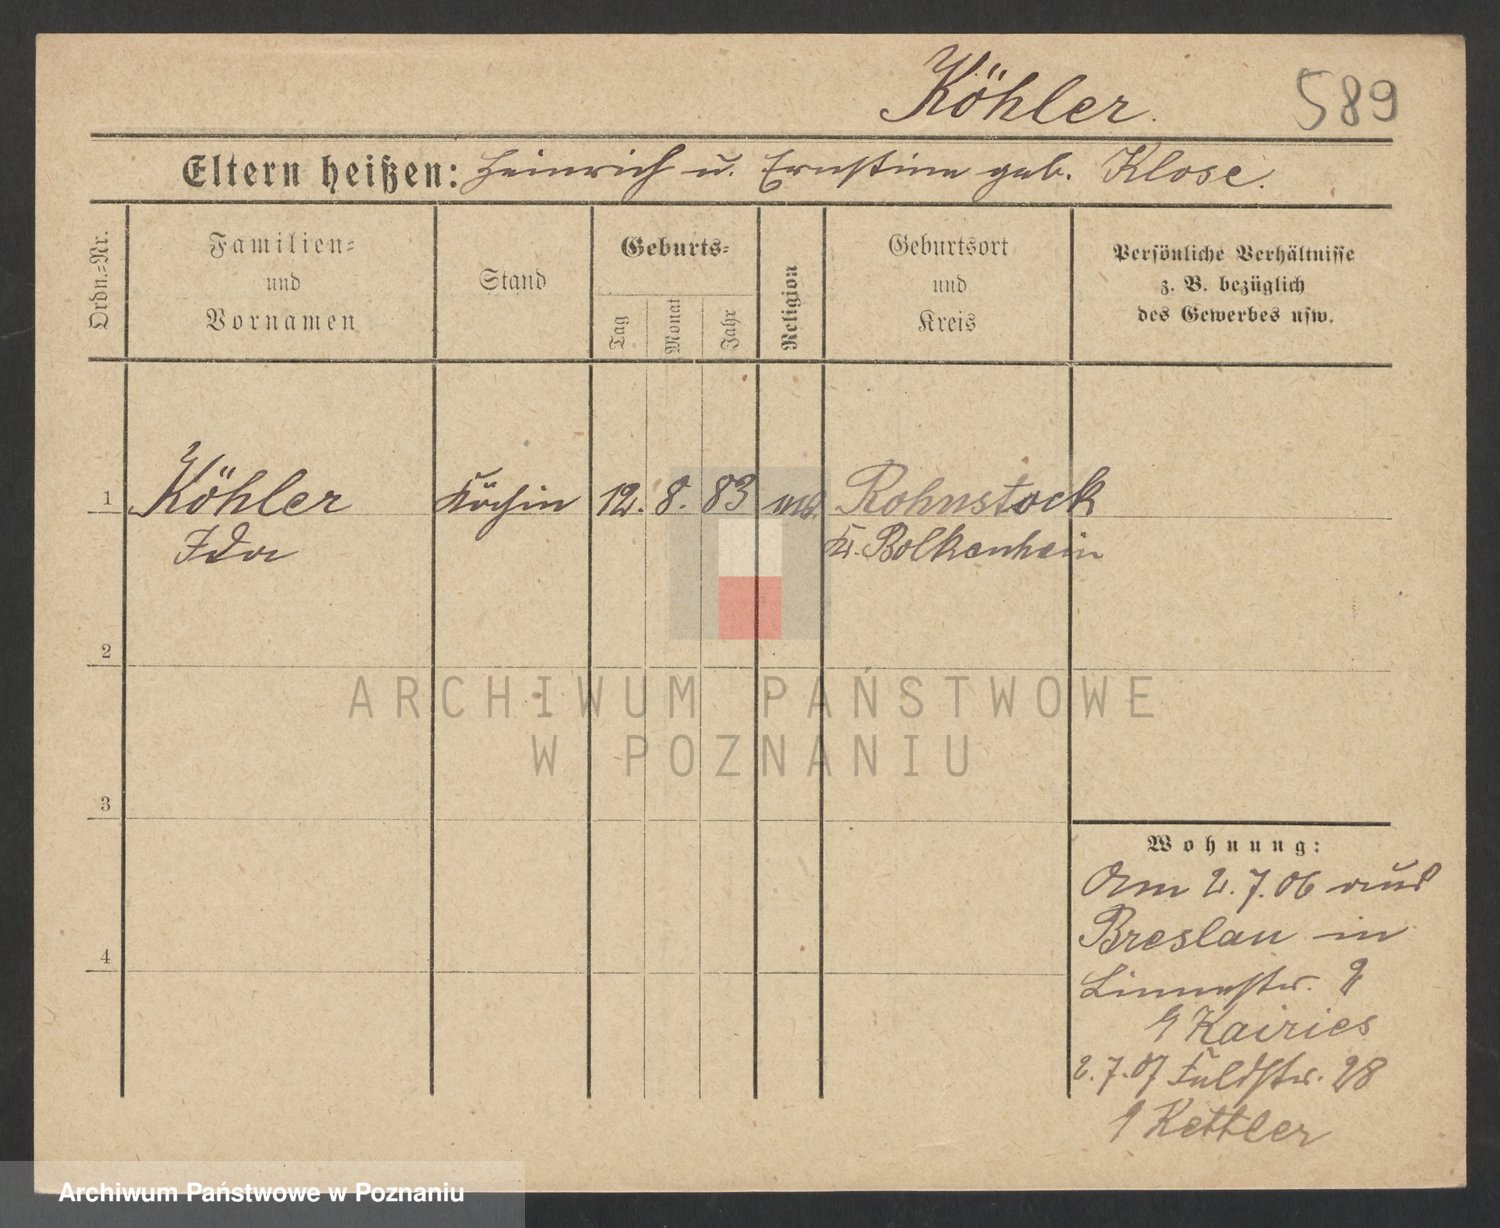 Köhler. 589
Eltern heißen: Heinrich u. Ernstine geb. Klose.
Ordn.-Nr.
Familien-
und
Vornamen
Stand
Geburts-
Tag
Monat
Jahr
Religion
Geburtsort
und
Kreis
Persönliche Verhältnisse
z. B. bezüglich
des Gewerbes usw.
1 Köhler Köchin 12. 8. 83 Rohnstock
Ida Kr. Bolkenhein
2
3
4
ARCHIWUM PAŃSTWOWE
W POZNANIU
Wohnung:
Am 2.7.06 aus
Breslau in
Kairies
2.7.07 28
Kettler
Archiwum Państwowe w Poznaniu